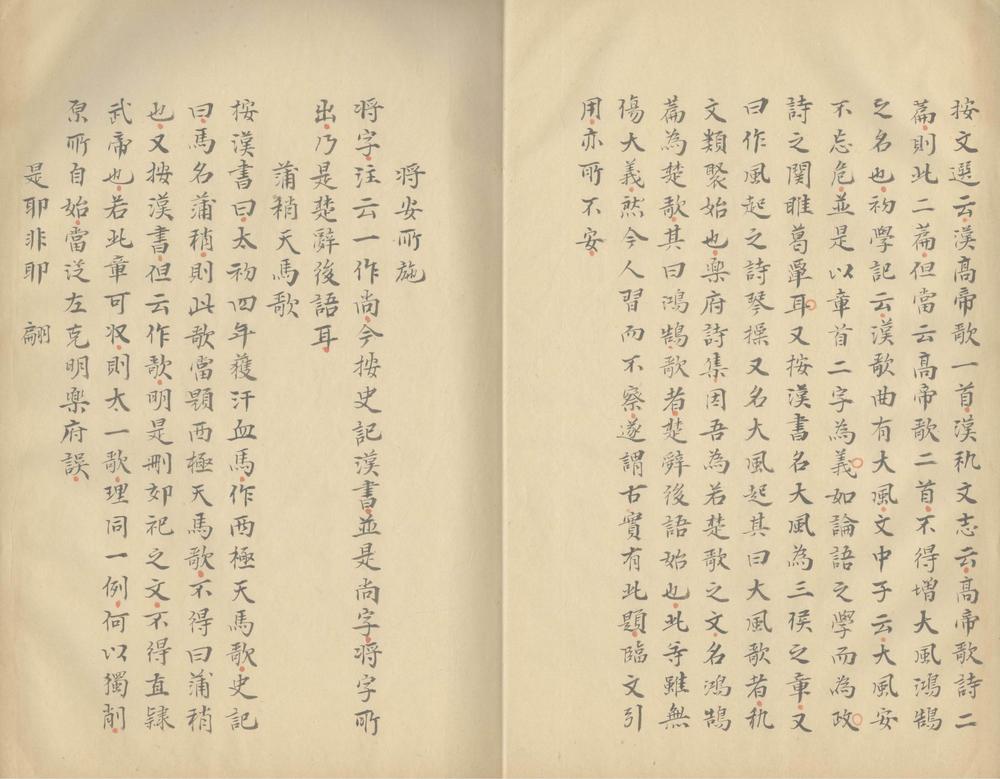 按文選云漢高帝歌一首漢秇文志云高帝歌詩二
篇則此二篇但當云高帝歌二首不得增大風鴻鵠
之名也初學記云漢歌曲有大風文中子云大風安
不忘危並是以章首二字為義如論語之學而為政
詩之関睢葛覃耳又按漢書名大風為三侯之章又
曰作風起之詩琴操又名大風起其曰大風歌者秇
文類聚始也樂府詩集因吾為若楚歌之文名鴻鵠
篇為楚歌其曰鴻鵠歌者楚辭後語始也此等雖無
傷大義然今人習而不察遂謂古實有此題臨文引
用亦所不安
將安所施
將字注云一作尚今按史記漢書並是尚字將字所
出乃是楚辭後語耳
蒲梢天馬歌
按漢書曰太初四年獲汗血馬作西極天馬歌史記
曰馬名蒲梢則此歌當題西極天馬歌不得曰蒲梢
也又按漢書但云作歌明是刪郊祀之文不得直隸
武帝也若此章可収則太一歌理同一例何以獨削
原所自始當從左克明樂府誤
是耶非耶 翩